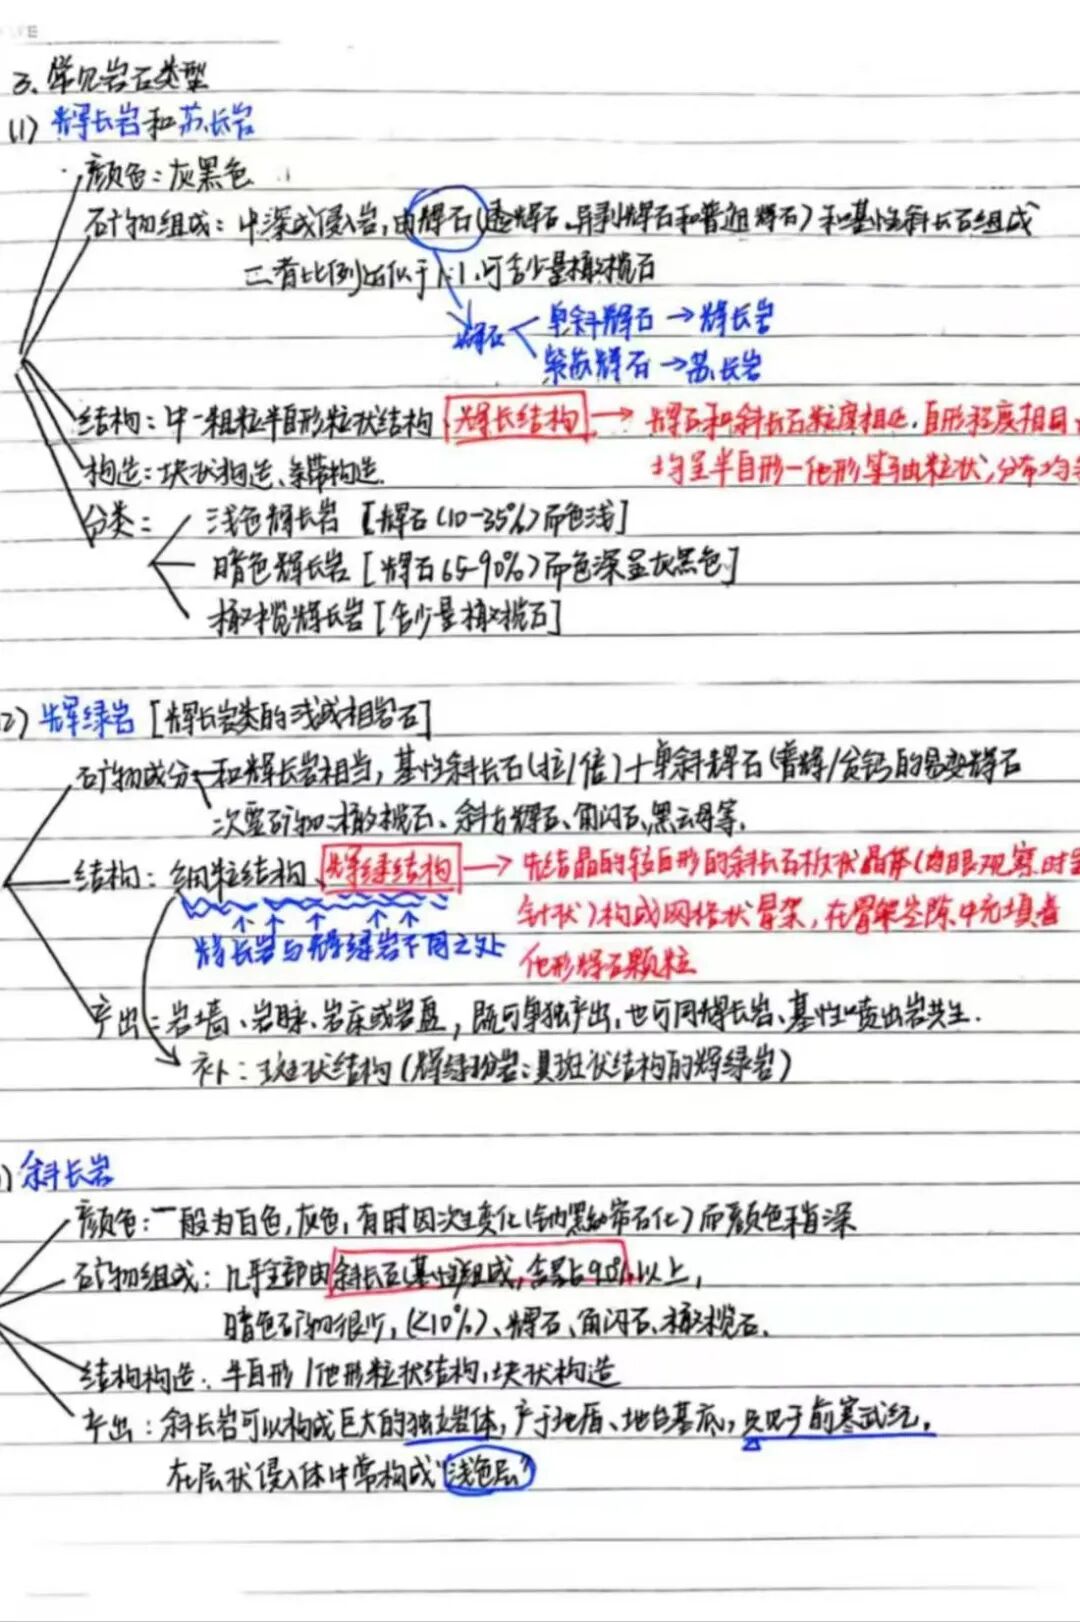 3、常见岩石类型
(1) 辉长岩和苏长岩
颜色：灰黑色
矿物组成：中深成侵入岩，由辉石(透辉石、异剥辉石和普通辉石)和基性斜长石组成
二者比例近似于1:1.可含少量橄榄石
辉石 单斜辉石→辉长岩
紫苏辉石→苏长岩
结构：中-粗粒半自形粒状结构 辉长结构 → 辉石和斜长石粒度相近，自形程度相同，
均呈半自形-他形等轴粒状，分布均
构造：块状构造、条带构造.
分类： 浅色辉长岩 [辉石(10-35%)而色浅]
暗色辉长岩 [辉石65-90%)而色深呈灰黑色]
橄榄辉长岩 [含少量橄榄石]
2) 辉绿岩 [辉长岩类的浅成相岩石]
矿物成分 和辉长岩相当，基性斜长石(拉/倍)+单斜辉石(普辉/贫钙的易变辉石
次要矿物：橄榄石、斜方辉石、角闪石、黑云母等.
结构：细粒结构、辉绿结构 → 先结晶的较自形的斜长石板状晶体(肉眼观察时呈
针状)构成网格状骨架，在骨架空隙中充填着
他形辉石颗粒
辉长岩与辉绿岩不同之处
产出：岩墙、岩脉、岩床或岩盆，既可单独产出，也可同辉长岩、基性喷出岩共生.
补：斑状结构(辉绿玢岩：具斑状结构的辉绿岩)
) 斜长岩
颜色：一般为白色，灰色，有时因次生变化(钠黝帘石化)而颜色稍深
矿物组成：几乎全部由斜长石(基性)组成，含量占90%以上，
暗色矿物很少，(<10%)、辉石、角闪石、橄榄石.
结构构造：半自形/他形粒状结构，块状构造
产出：斜长岩可以构成巨大的独立岩体，产于地盾、地台基底，只见于前寒武纪.
在层状侵入体中常构成"浅色层"